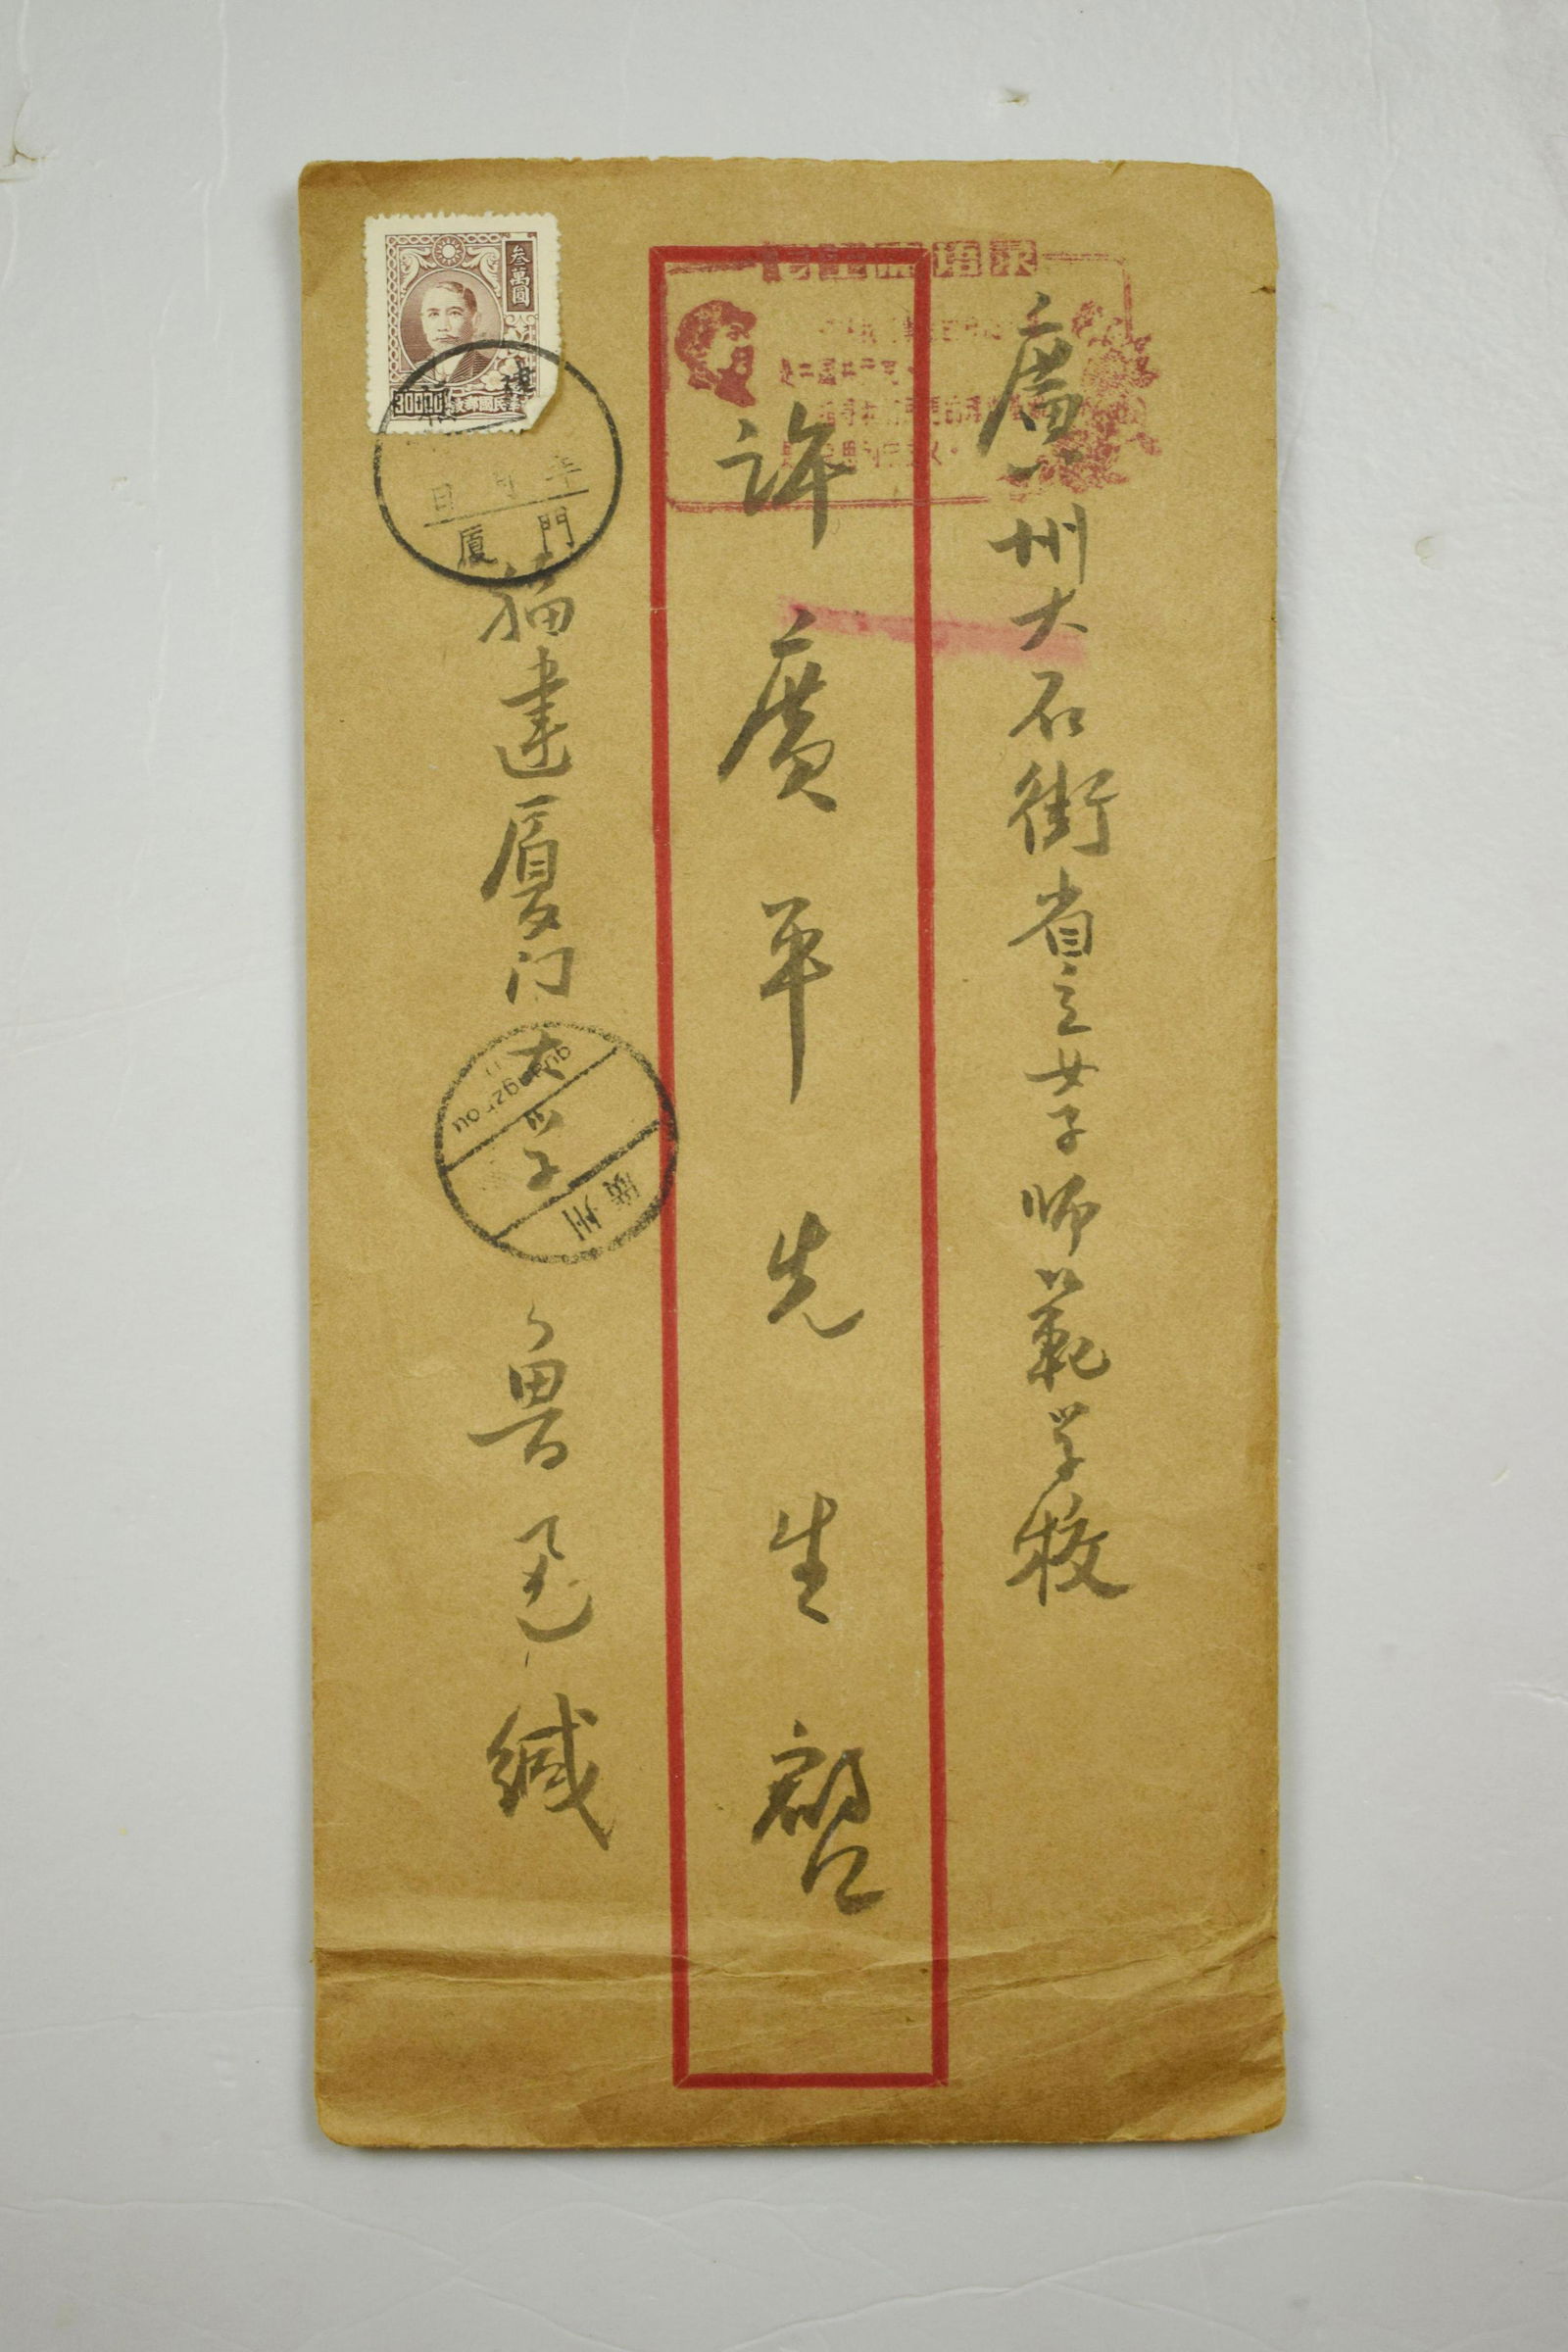 廣州大石街省立女子师範学校
許廣平先生啓
福建厦门大学 魯迅 缄
叁萬圓
30000
年 月 日
厦門
guangzhou
廣州